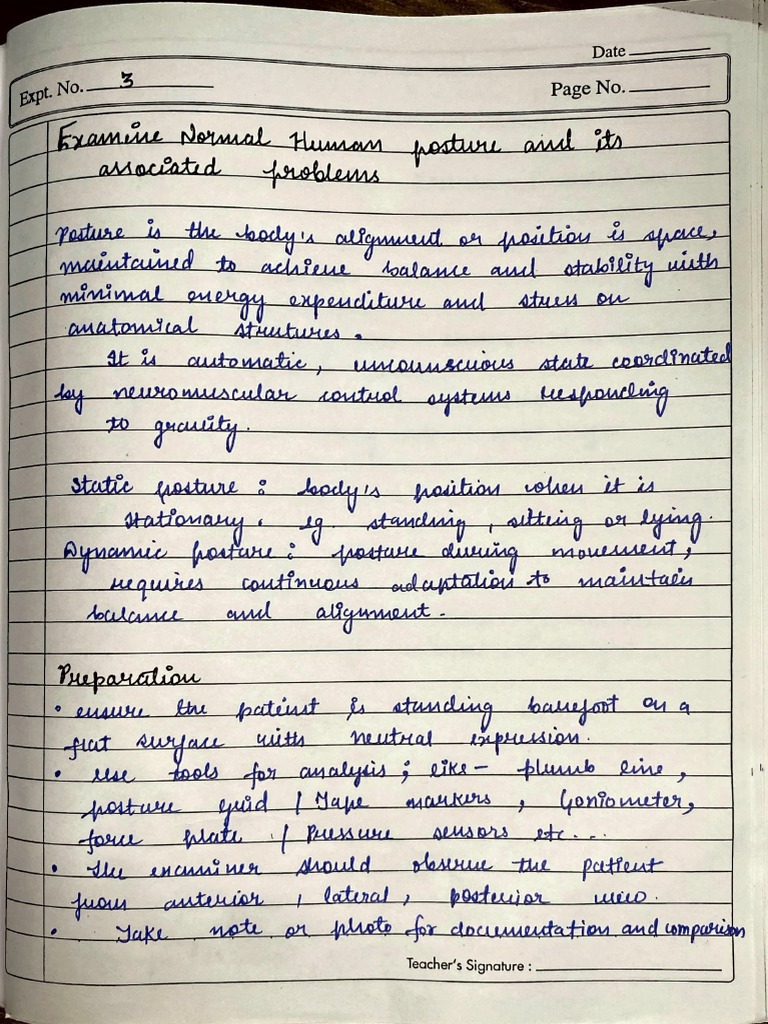 Date
Expt. No. 3
Page No.
Examine Normal Human posture and its
associated problems
Posture is the body's alignment or position is space,
maintained to achieve balance and stability with
minimal energy expenditure and stress on
anatomical strutures.
It is automatic, unconunscious state coordinated
by neuromuscular control systems responding
to gravity.
Static posture : body's position when it is
stationary. eg standing, sitting or lying.
Dynamic posture : posture during movement,
requires continuous adaptation to maintain
balance and alignment.
Preparation
• ensure the pateinst is standing barefoot on a
flat surface with neutral expression.
• use tools for analysis ; like - plumb line,
posture grid / Tape markers, Goniometer,
force plate / Pressure sensors etc...
• the examiner should observe the patient
from anterior, lateral, posterior view.
• Take note or photo for documentation and comparison
Teacher's Signature :